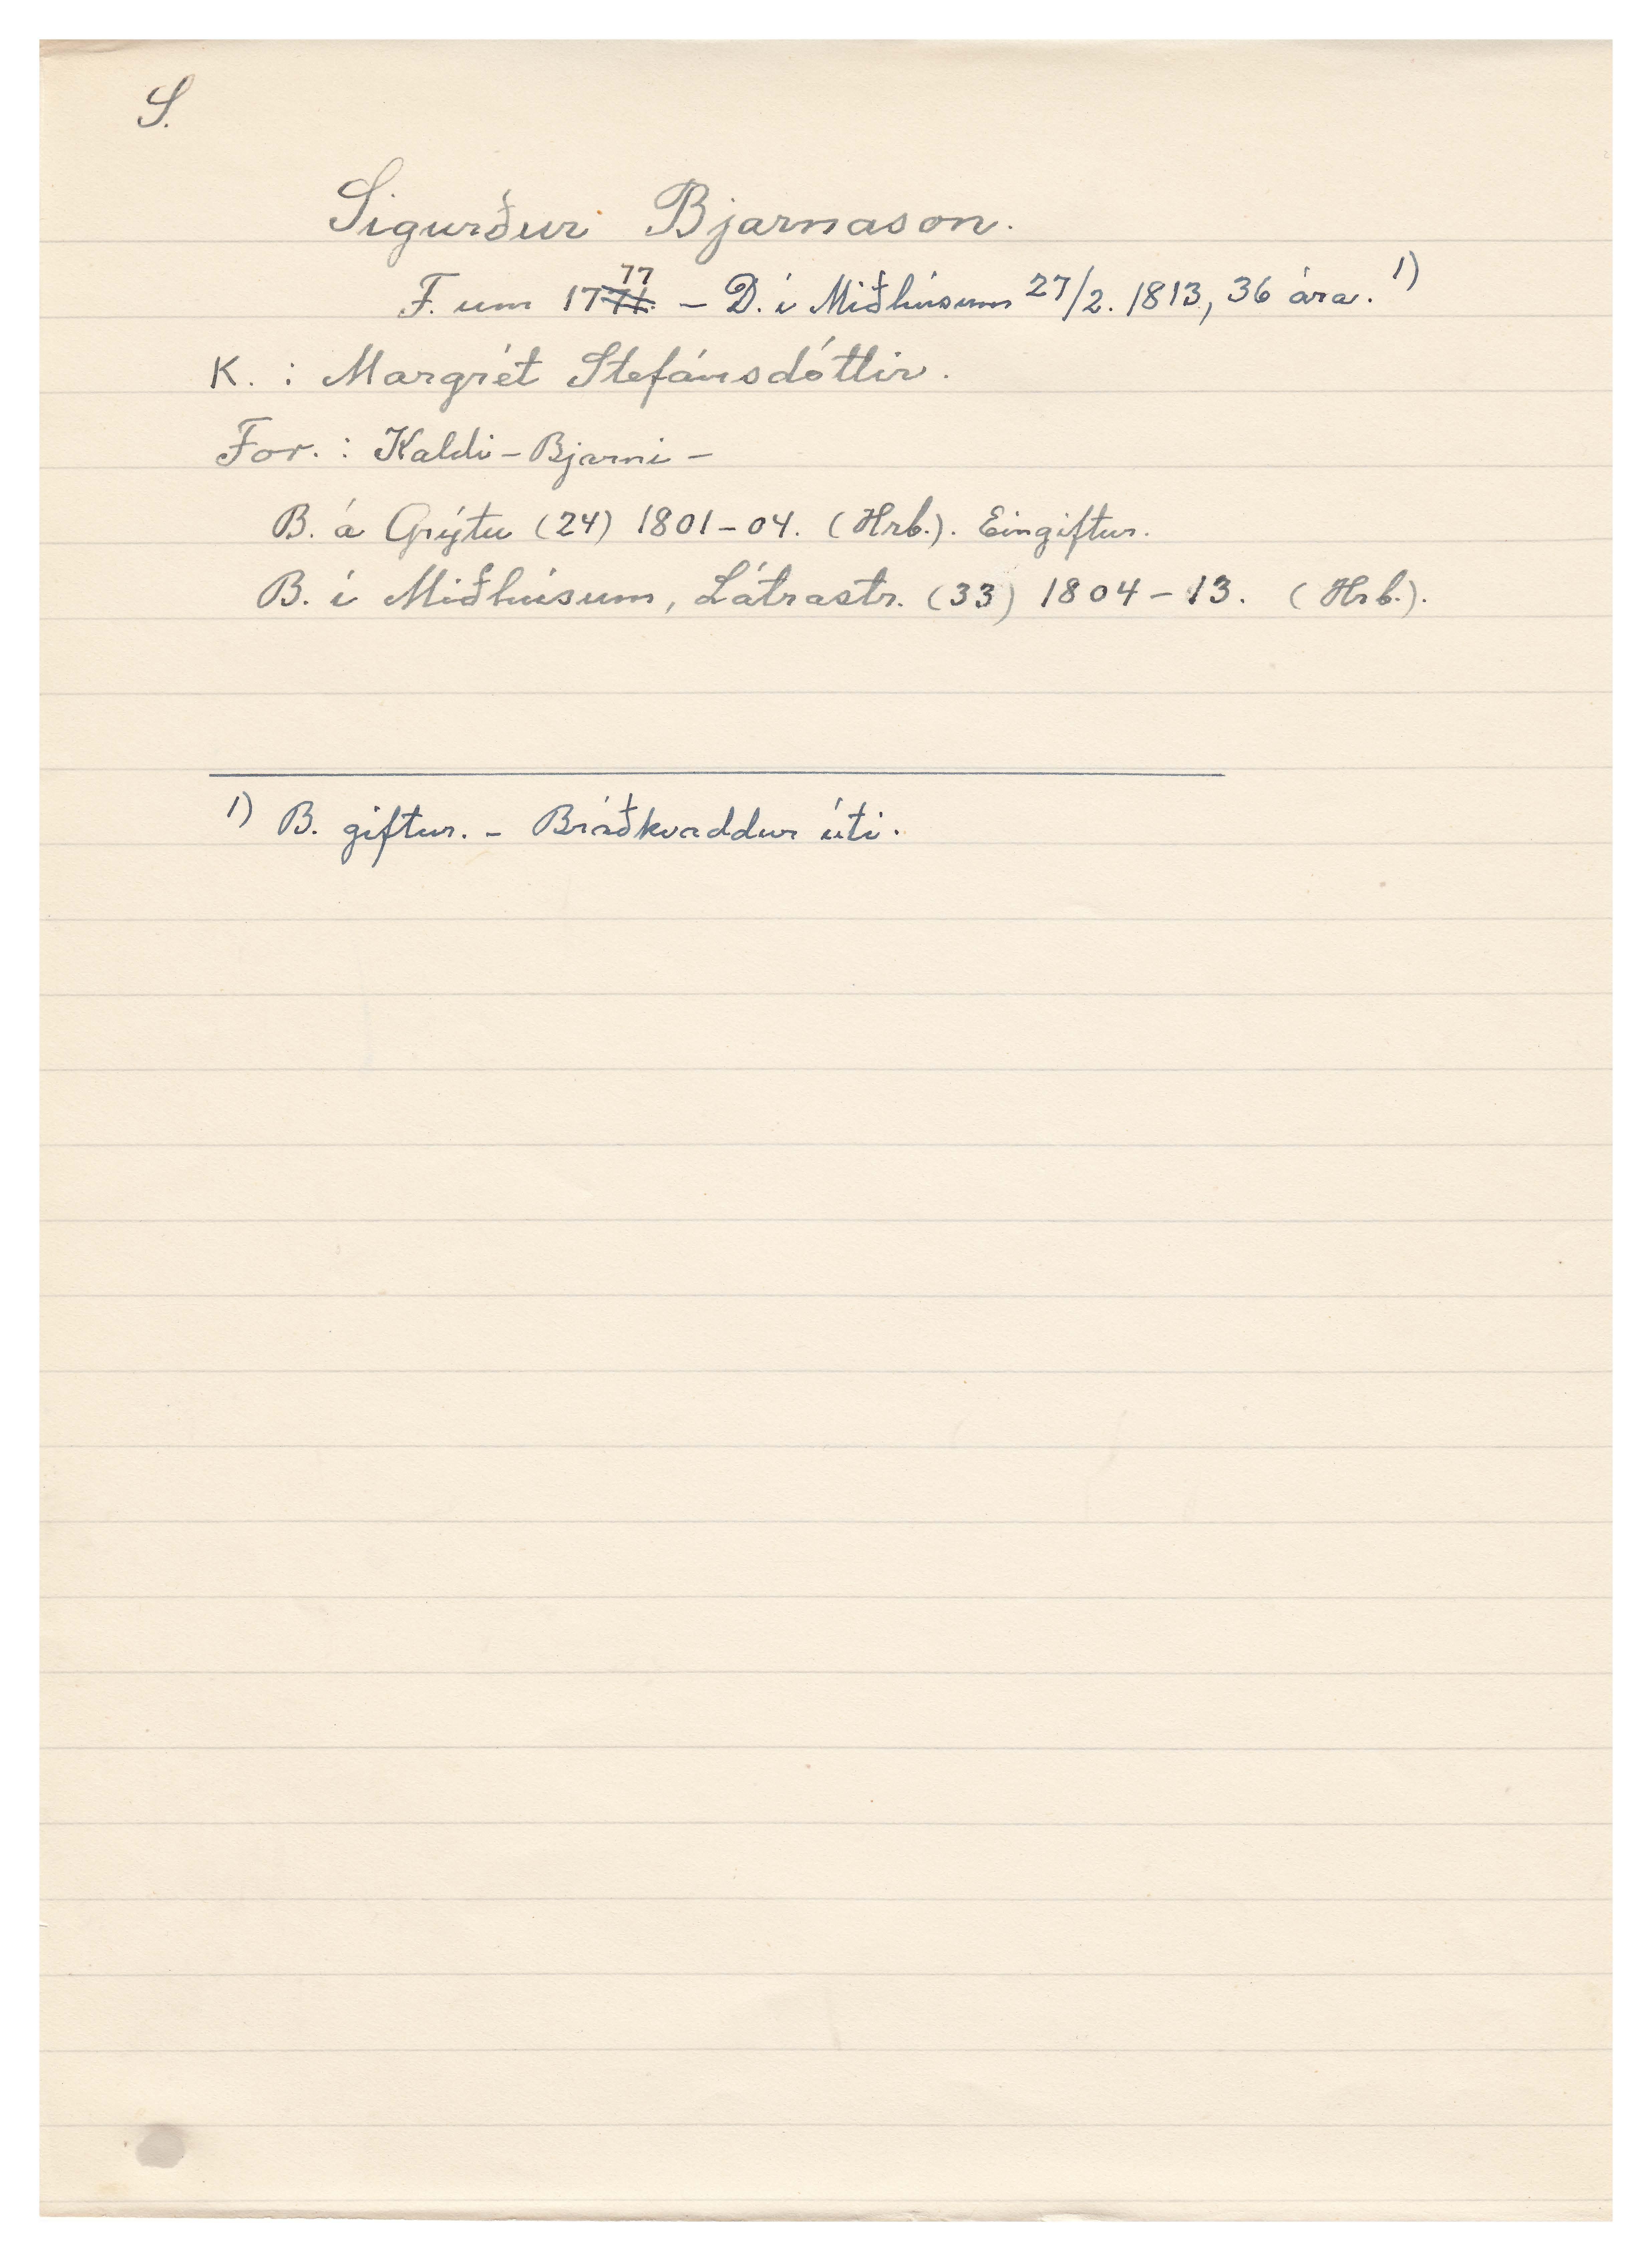 S.
Sigurður Bjarnason.
F. um 1777 – D. í Miðhúsum 27/2. 1813, 36 ára. 1)
K. : Margrét Stefánsdóttir.
For. : Kaldi-Bjarni –
B. á Grýtu (24) 1801-04. (Hrb.). Eingiftur.
B. í Miðhúsum, Látrastr. (33) 1804-13. (Hrb.).
1) B. giftur. - Bráðkvaddur úti.